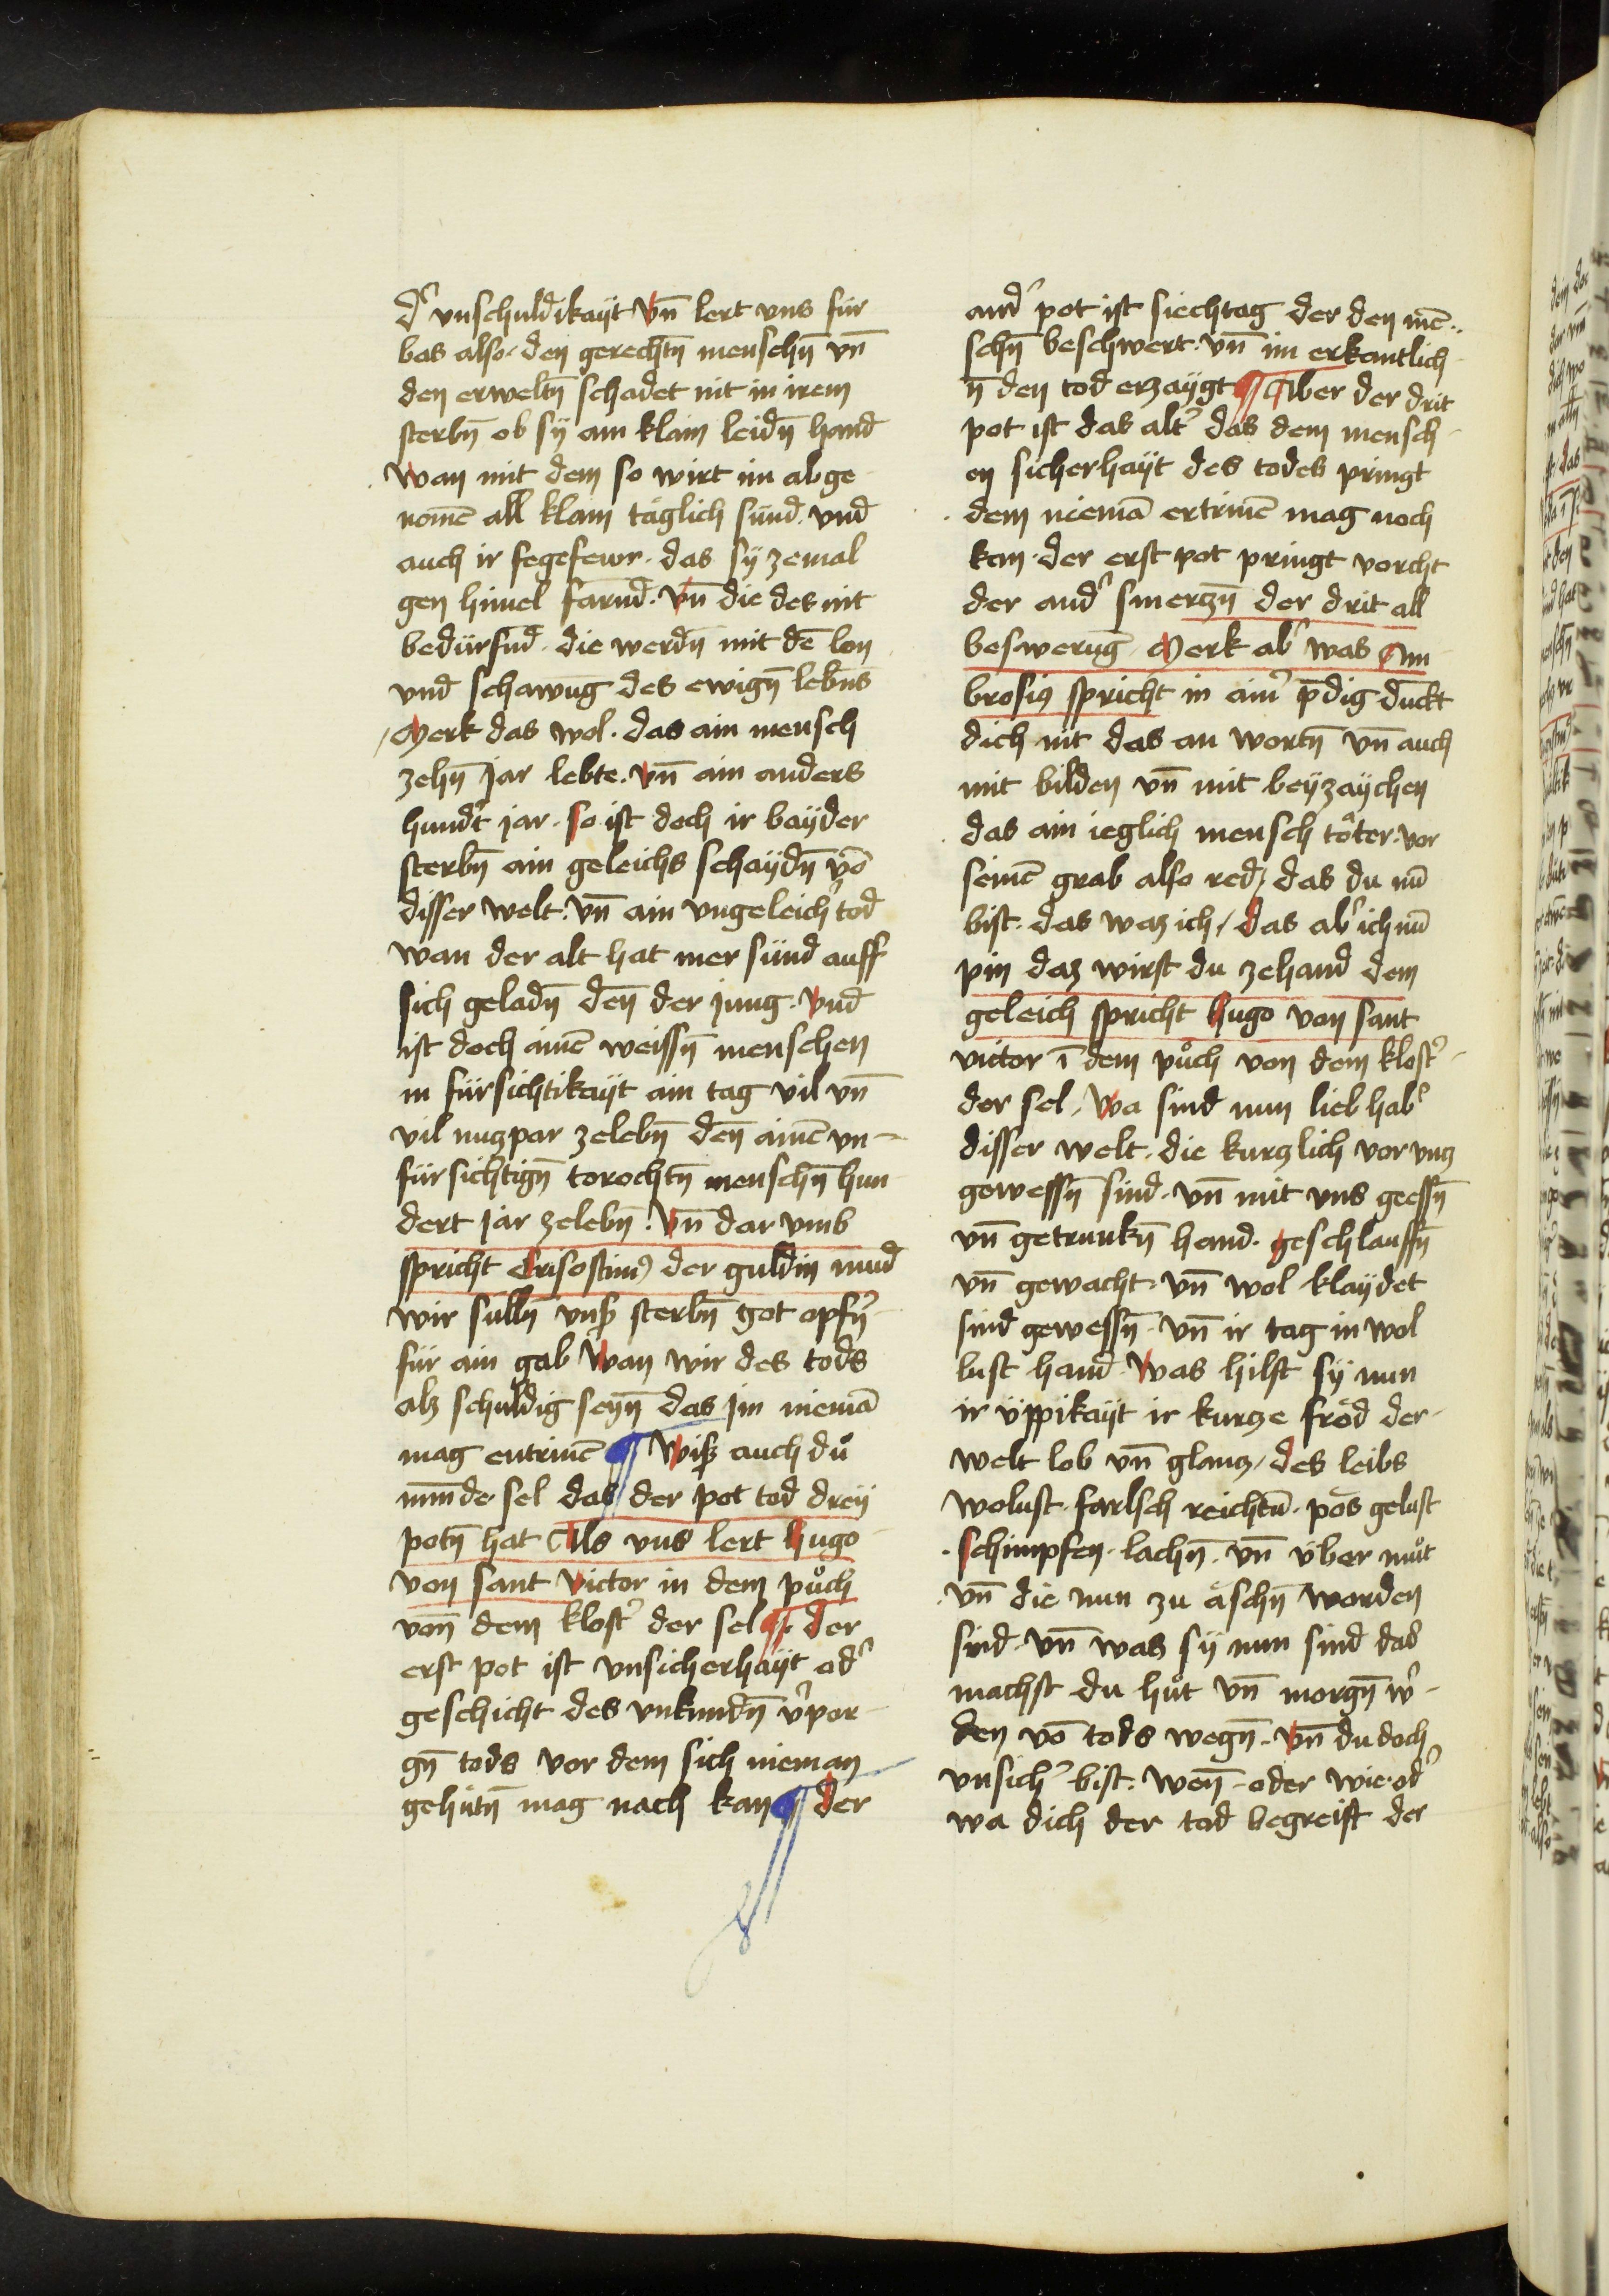 d᾽ vnschuldikayt vn̄ lert vns für
bas also · den gerechtn̄ menschn̄ vn̄
den erweltn̄ schadet nit in irem
sterbn̄ ob sy ain klain leidn̄ hand
wan mit dem so wirt im abge
nomē all klain täglich sünd · vnd
auch ir fegefewr · das sy zemal
gen himel farnd · vn̄ die des nit
bedürfnd · die werdn̄ mit dē lon
vnd schawug des ewign̄ lebn̄s
Merk das wol · das ain mensch
zehn̄ jar lebte · vn̄ ain anders
hundt᾽ jar · so ist doch ir bayder
sterbn̄ ain geleichs schaydn̄ vō
disser welt · vn̄ ain vngeleich᾽ tod
wan der alt hat mer sünd auff
sich geladn̄ den̄ der jung · vnd
ist doch aimē weissn̄ menschen
in fürsichtikayt ain tag vil vn̄
vil nuzpar zelebn̄ den̄ aimē vn-
fürsichtign̄ torochtn̄ menschn̄ hun
dert jar zelebn̄ · vn̄ dar vmb
spricht Crisostim᾽ der guldin mūd
wir sulln̄ vns᾽ sterbn̄ got opfn᾽
für ain gab wan wir des tods
alz schuldig seyn̄ das jm niemā
mag entrinē ¶ Wiß auch dů
minde sel das der pot tod drey
potn̄ hat Als vns lert hugo
von sant victor in dem půch
von̄ dem klost᾽ der sel ¶ · der
erst pot ist vnsicherhayt od᾽
geschicht des vnkundn̄ v᾽por
gn̄ tods vor dem sich nieman
gehütn̄ mag nach kan ¶ der
and᾽ pot ist siechtag der den mē
schn̄ beschwert · vn̄ im erkantlich
n̄ den tod erzaygt ¶ Aber der drit
pot ist das alt᾽ das dem mensch
en sicherhayt des todes pringt
dem niemā ertrinē mag noch
kan · der erst pot pringt vorcht
der and᾽ smerzn̄ der drit all
beswerūg Merk ab᾽ was Am
brosi᾽ spricht in aim᾽ p̄dig duckt
dich nit das an wortn̄ vn̄ auch
mit bilden vn̄ mit beyzaychen
das ain ieglich mensch töter vor
seinē grab also red / das du nū
bist · das waz ich / das ab᾽ ich nū
pin daz wirst du zehand dem
geleich spricht hugo von sant
victor ī dem půch von dem klost᾽
der sel / Wa sind nun lieb hab᾽
disser welt · die kurzlich vor vnz
gewessn̄ sind · vn̄ mit vns geessn̄
vn̄ getrunkn̄ hand · geschlauffn̄
vn̄ gewacht · vn̄ wol klaydet
sind gewessn̄ · vn̄ ir tag in wol
lust hand · Was hilft sy nun
ir üppikayt ir kurze fröd der
welt lob vn̄ glanz / des leibs
wolust · farlsch reichtū · pös gelust
schimpfen · lachn̄ · vn̄ über můt
vn̄ die nun zu äschn̄ worden
sind · vn̄ was sy nun sind das
machst du hüt vn̄ morgn̄ w᾽
den vō tods wegn̄ · vn̄ du doch
vnsich᾽ bist · wen̄ · oder wie · od᾽
wa dich der tod begreift der